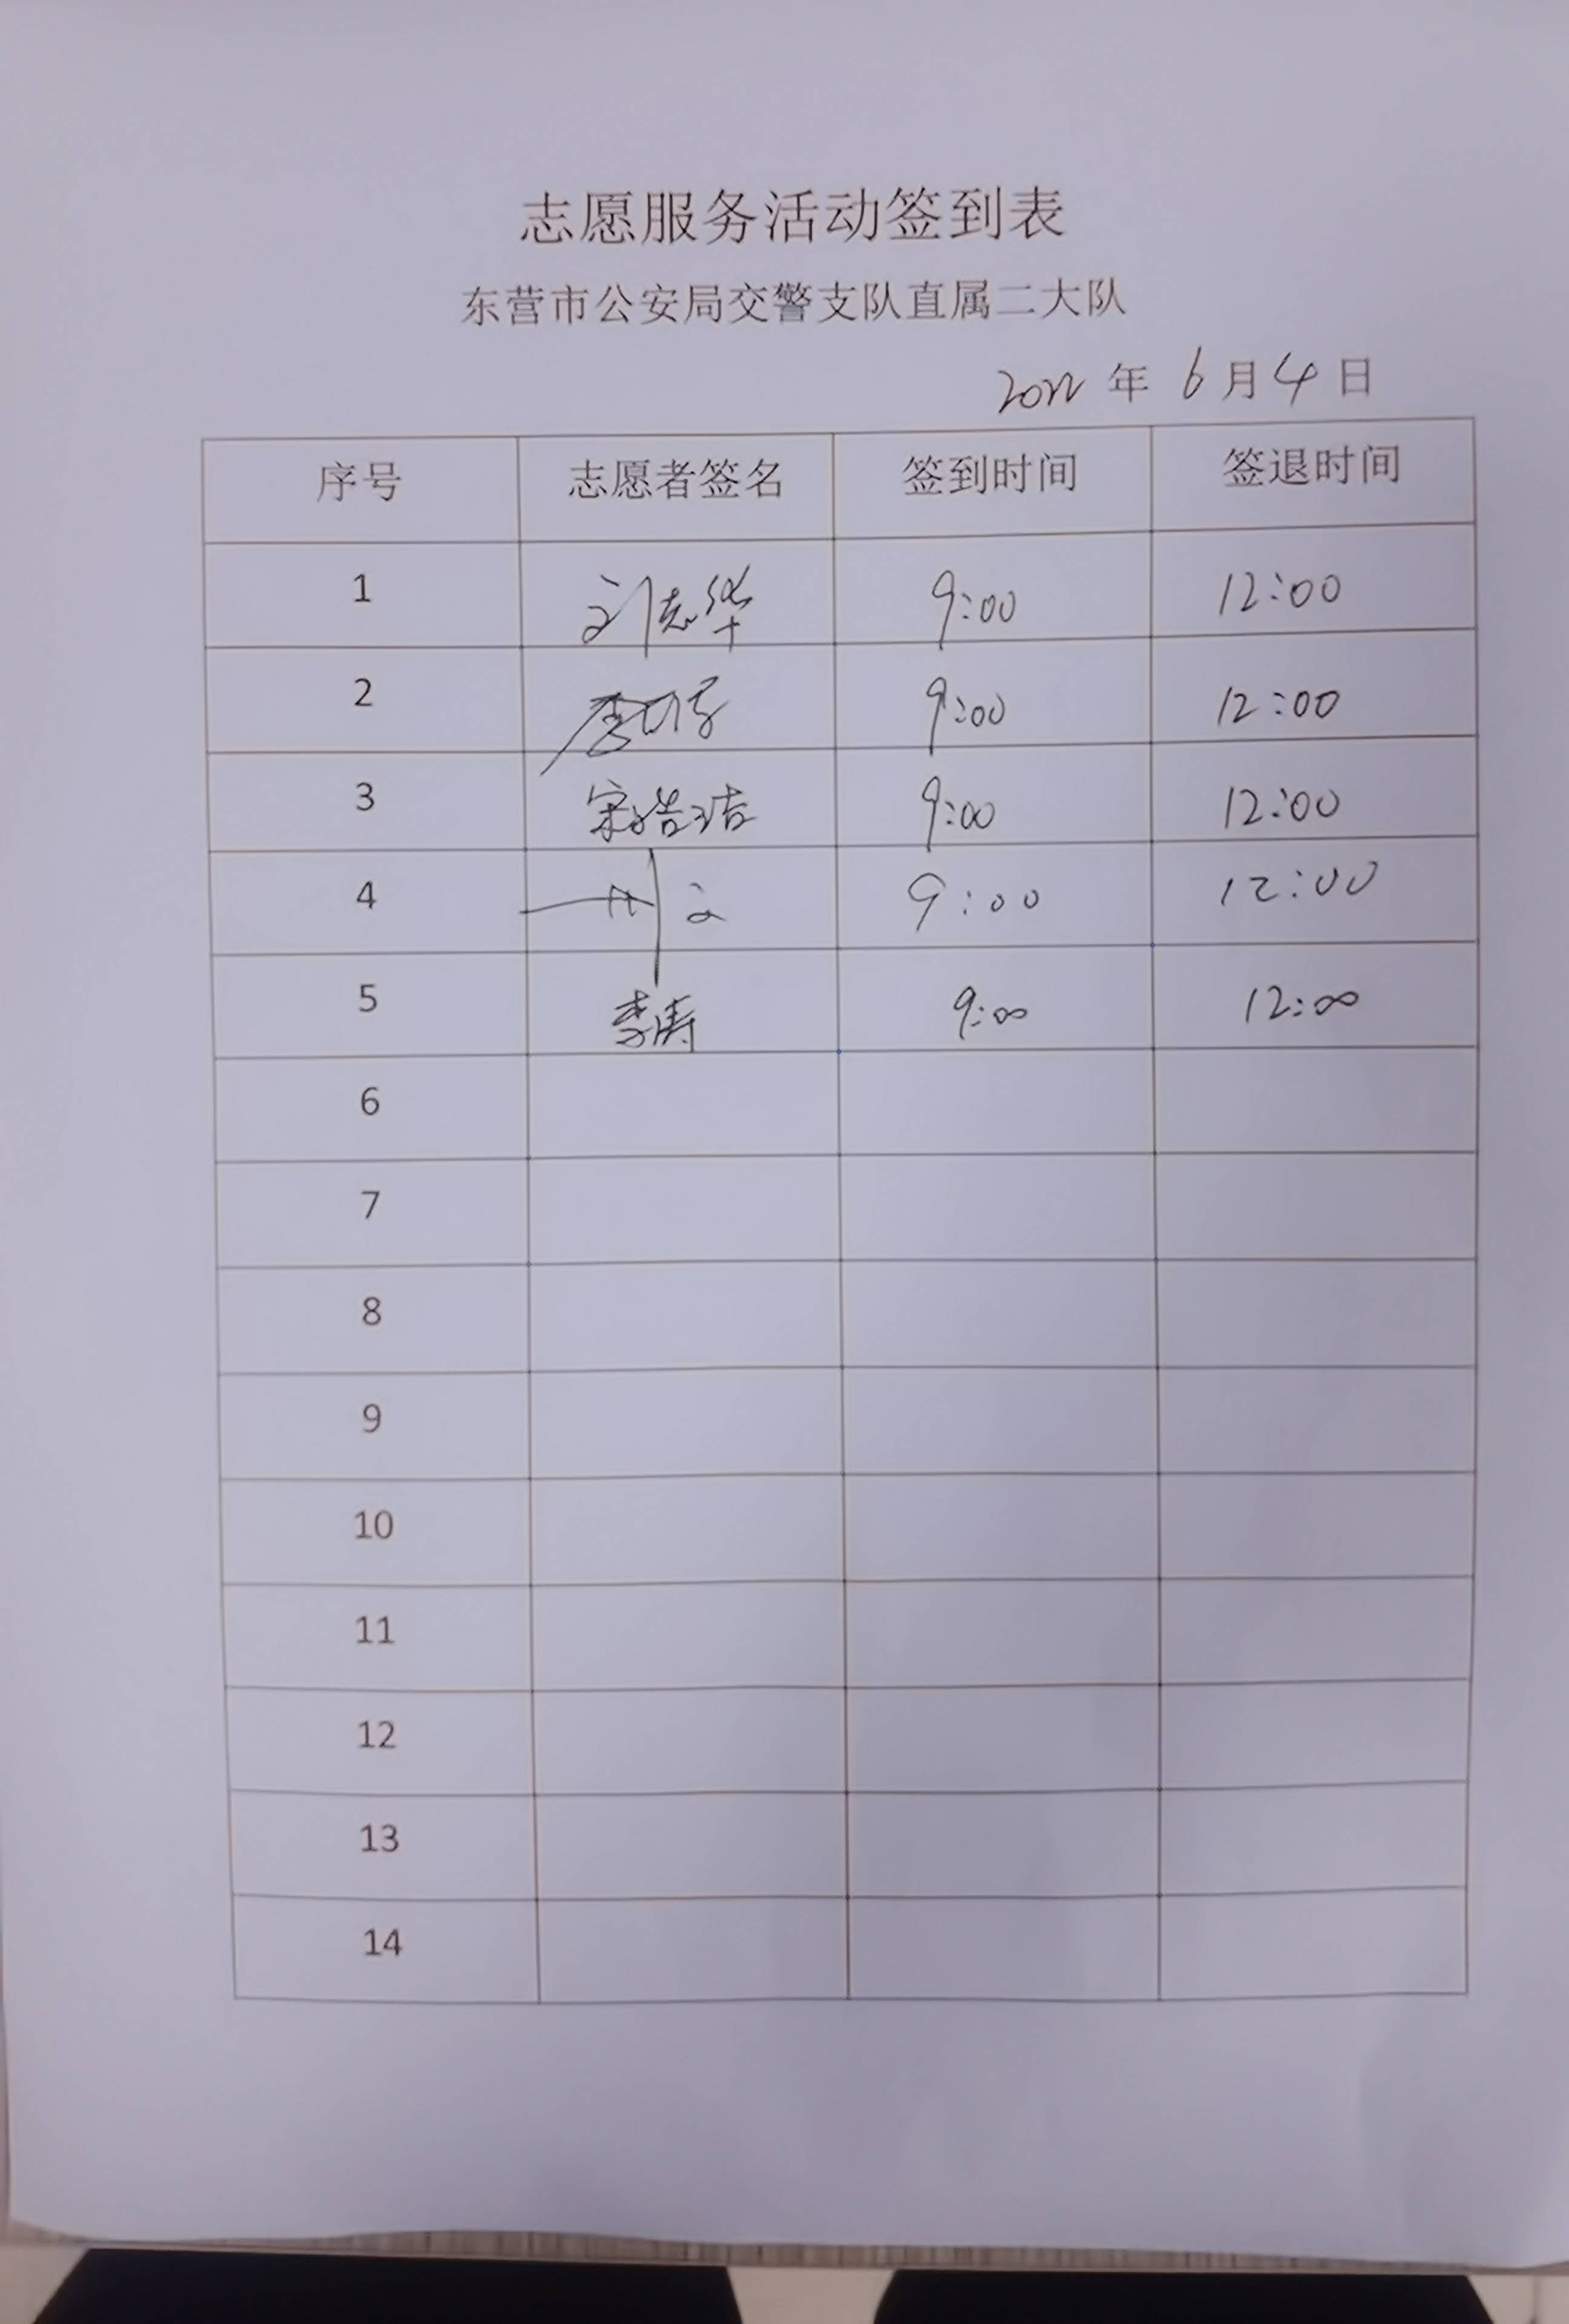 志愿服务活动签到表
东营市公安局交警支队直属二大队
2022年6月4日
序号 志愿者签名 签到时间 签退时间
1 刘志华 9:00 12:00
2 9:00 12:00
3 宋浩洁 9:00 12:00
4 9:00 12:00
5 李涛 9:00 12:00
6
7
8
9
10
11
12
13
14